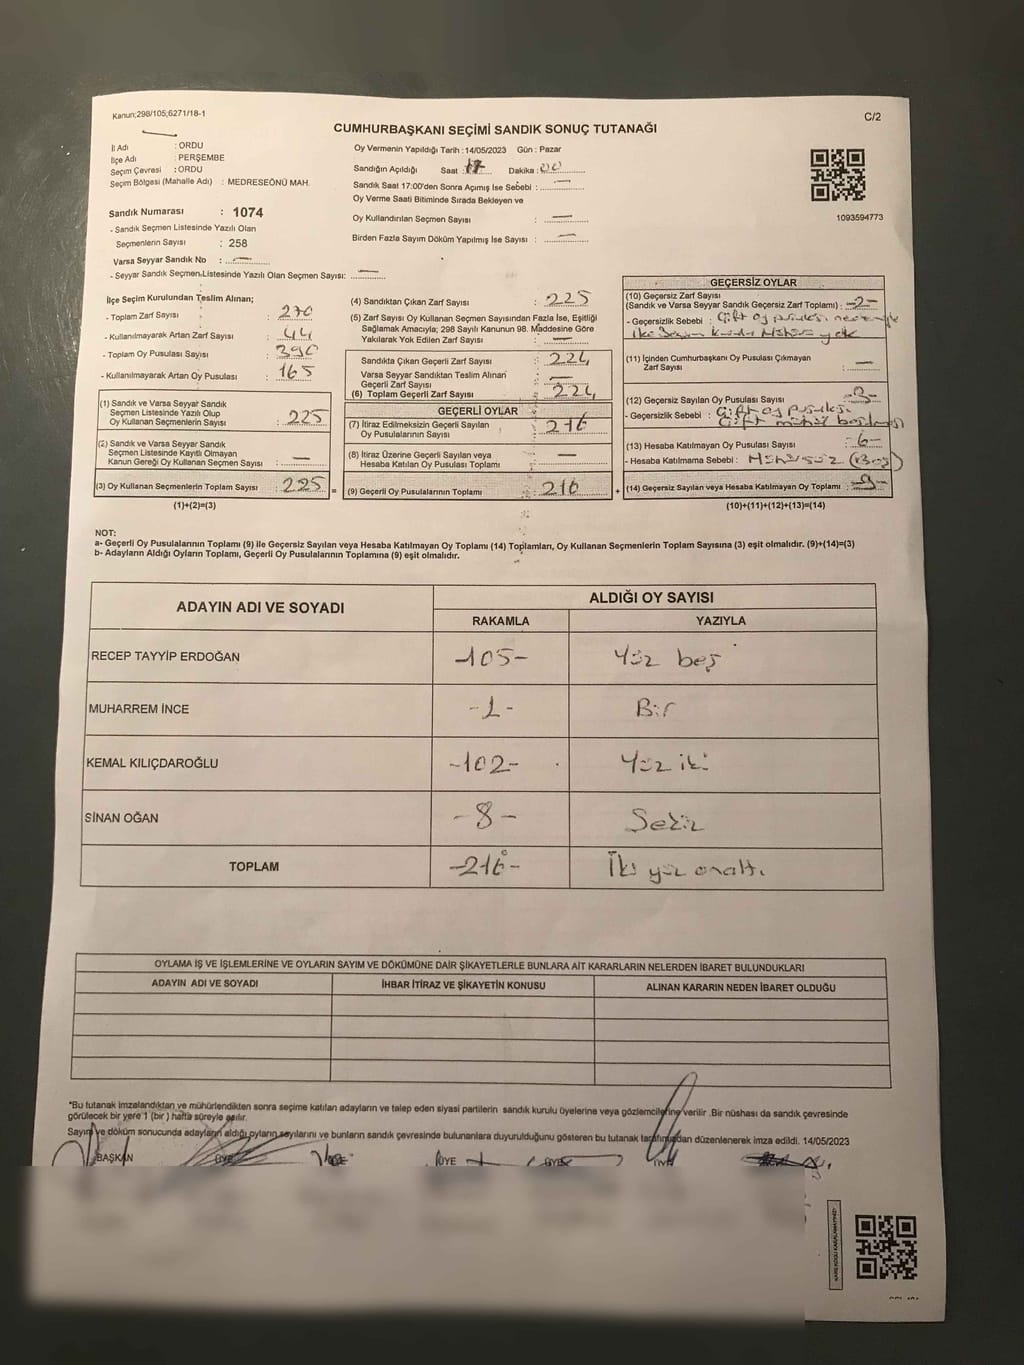 Kanun;298/105;6271/18-1
C/2
CUMHURBAŞKANI SEÇİMİ SANDIK SONUÇ TUTANAĞI
İl Adı : ORDU
İlçe Adı : PERŞEMBE
Seçim Çevresi : ORDU
Seçim Bölgesi (Mahalle Adı) : MEDRESEÖNÜ MAH.
Sandık Numarası : 1074
- Sandık Seçmen Listesinde Yazılı Olan
Seçmenlerin Sayısı : 258
Varsa Seyyar Sandık No : —
- Seyyar Sandık Seçmen Listesinde Yazılı Olan Seçmen Sayısı: —
Oy Vermenin Yapıldığı Tarih :14/05/2023 Gün : Pazar
Sandığın Açıldığı Saat : 17 Dakika : 00
Sandık Saat 17:00'den Sonra Açımış İse Sebebi : —
Oy Verme Saati Bitiminde Sırada Bekleyen ve
Oy Kullandırılan Seçmen Sayısı : —
Birden Fazla Sayım Döküm Yapılmış İse Sayısı : —
1093594773
İlçe Seçim Kurulundan Teslim Alınan;
- Toplam Zarf Sayısı : 270
- Kullanılmayarak Artan Zarf Sayısı : 44
- Toplam Oy Pusulası Sayısı : 390
- Kullanılmayarak Artan Oy Pusulası : 165
(1) Sandık ve Varsa Seyyar Sandık
Seçmen Listesinde Yazılı Olup
Oy Kullanan Seçmenlerin Sayısı : 225
(2) Sandık ve Varsa Seyyar Sandık
Seçmen Listesinde Kayıtlı Olmayan
Kanun Gereği Oy Kullanan Seçmen Sayısı : —
(3) Oy Kullanan Seçmenlerin Toplam Sayısı : 225 =
(1)+(2)=(3)
(4) Sandıktan Çıkan Zarf Sayısı : 225
(5) Zarf Sayısı Oy Kullanan Seçmen Sayısından Fazla İse, Eşitliği
Sağlamak Amacıyla; 298 Sayılı Kanunun 98. Maddesine Göre
Yakılarak Yok Edilen Zarf Sayısı : —
Sandıkta Çıkan Geçerli Zarf Sayısı : 224
Varsa Seyyar Sandıktan Teslim Alınan
Geçerli Zarf Sayısı : —
(6) Toplam Geçerli Zarf Sayısı : 224
GEÇERLİ OYLAR
(7) İtiraz Edilmeksizin Geçerli Sayılan
Oy Pusulalarının Sayısı : 216
(8) İtiraz Üzerine Geçerli Sayılan veya
Hesaba Katılan Oy Pusulası Toplamı : —
(9) Geçerli Oy Pusulalarının Toplamı : 216 +
GEÇERSİZ OYLAR
(10) Geçersiz Zarf Sayısı
(Sandık ve Varsa Seyyar Sandık Geçersiz Zarf Toplamı) : -2-
- Geçersizlik Sebebi : Çift oy pusulası
yok
(11) İçinden Cumhurbaşkanı Oy Pusulası Çıkmayan
Zarf Sayısı : —
(12) Geçersiz Sayılan Oy Pusulası Sayısı
- Geçersizlik Sebebi : Çift oy pusulası
Çift mühür basılması
(13) Hesaba Katılmayan Oy Pusulası Sayısı : 6-
- Hesaba Katılmama Sebebi : Mühürsüz (Boş)
(14) Geçersiz Sayılan veya Hesaba Katılmayan Oy Toplamı :
(10)+(11)+(12)+(13)=(14)
NOT:
a- Geçerli Oy Pusulalarının Toplamı (9) ile Geçersiz Sayılan veya Hesaba Katılmayan Oy Toplamı (14) Toplamları, Oy Kullanan Seçmenlerin Toplam Sayısına (3) eşit olmalıdır. (9)+(14)=(3)
b- Adayların Aldığı Oyların Toplamı, Geçerli Oy Pusulalarının Toplamına (9) eşit olmalıdır.
ADAYIN ADI VE SOYADI ALDIĞI OY SAYISI
RAKAMLA YAZIYLA
RECEP TAYYİP ERDOĞAN -105- Yüz beş
MUHARREM İNCE -1- Bir
KEMAL KILIÇDAROĞLU -102- Yüz iki
SİNAN OĞAN -8- Sekiz
TOPLAM -216- İki yüz onaltı
OYLAMA İŞ VE İŞLEMLERİNE VE OYLARIN SAYIM VE DÖKÜMÜNE DAİR ŞİKAYETLERLE BUNLARA AİT KARARLARIN NELERDEN İBARET BULUNDUKLARI
ADAYIN ADI VE SOYADI İHBAR İTİRAZ VE ŞİKAYETİN KONUSU ALINAN KARARIN NEDEN İBARET OLDUĞU
*Bu tutanak imzalandıktan ve mühürlendikten sonra seçime katılan adayların ve talep eden siyasi partilerin sandık kurulu üyelerine veya gözlemcilerine verilir .Bir nüshası da sandık çevresinde
görülecek bir yere 1 (bir ) hafta süreyle asılır.
Sayım ve döküm sonucunda adayların aldığı oyların sayılarını ve bunların sandık çevresinde bulunanlara duyurulduğunu gösteren bu tutanak tarafımızdan düzenlenerek imza edildi. 14/05/2023
BAŞKAN ÜYE ÜYE ÜYE ÜYE ÜYE